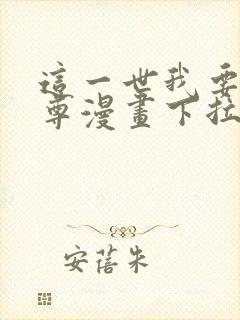 這一世我要
尊漫畫下拉
安蓓朱